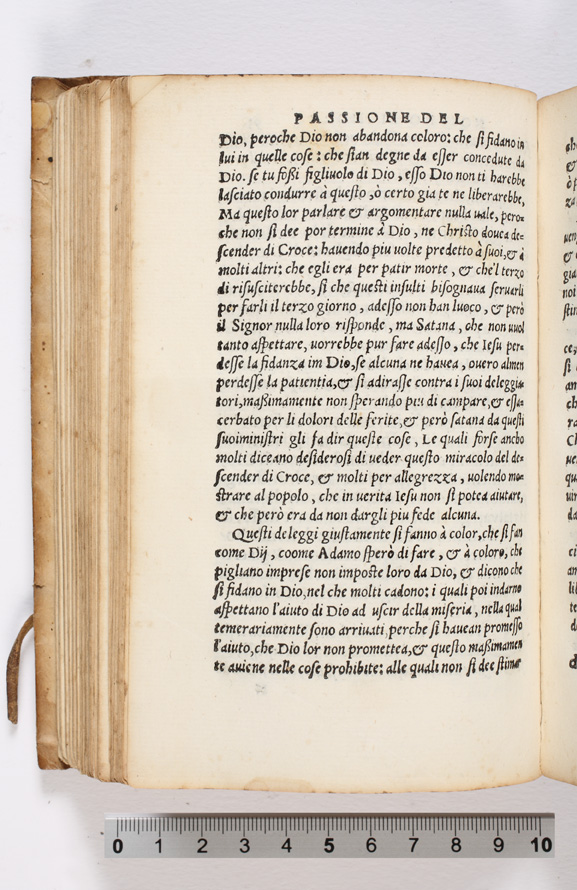 PASSIONE DEL
Dio, peroche Dio non abandona coloro: che si fidano in
lui in quelle cose: che sian degne da esser concedute da
Dio. se tu foßi figliuolo di Dio, esso Dio non ti harebbe
lasciato condurre à questo, ò certo gia te ne liberarebbe,
Ma questo lor parlare & argomentare nulla uale, pero=
che non si dee por termine à Dio, ne Christo douea de=
scender di Croce: hauendo piu uolte predetto à suoi, & à
molti altri: che egli era per patir morte, & che'l terzo
di risusciterebbe, si che questi insulti bisognaua seruarli
per farli il terzo giorno, adesso non han luoco, & però
il Signor nulla loro risponde, ma Satana, che non uuol
tanto aspettare, uorrebbe pur fare adesso, che Iesu per=
desse la fidanza im Dio, se alcuna ne hauea, ouero almen
perdesse la patientia, & si adirasse contra i suoi deleggia=
tori, maßimamente non sperando piu di campare, & essa=
cerbato per li dolori delle ferite, & però satana da questi
suoiministri gli fa dir queste cose, Le quali forse ancho
molti diceano desiderosi di ueder questo miracolo del de=
scender di Croce, & molti per allegrezza, uolendo mo=
strare al popolo, che in uerita Iesu non si potea aiutare,
& che però era da non dargli piu fede alcuna.
Questi deleggi giustamente si fanno à color, che si fan
come Dij, coome Adamo sperò di fare, & à coloro, che
pigliano imprese non imposte loro da Dio, & dicono che
si fidano in Dio, nel che molti cadono: i quali poi indarno
aspettano l'aiuto di Dio ad uscir della miseria, nella qual
temerariamente sono arriuati, perche si hauean promesso
l'aiuto, che Dio lor non promettea, & questo maßimamen
te auiene nelle cose prohibite: alle quali non si dee stimar
0 1 2 3 4 5 6 7 8 9 10